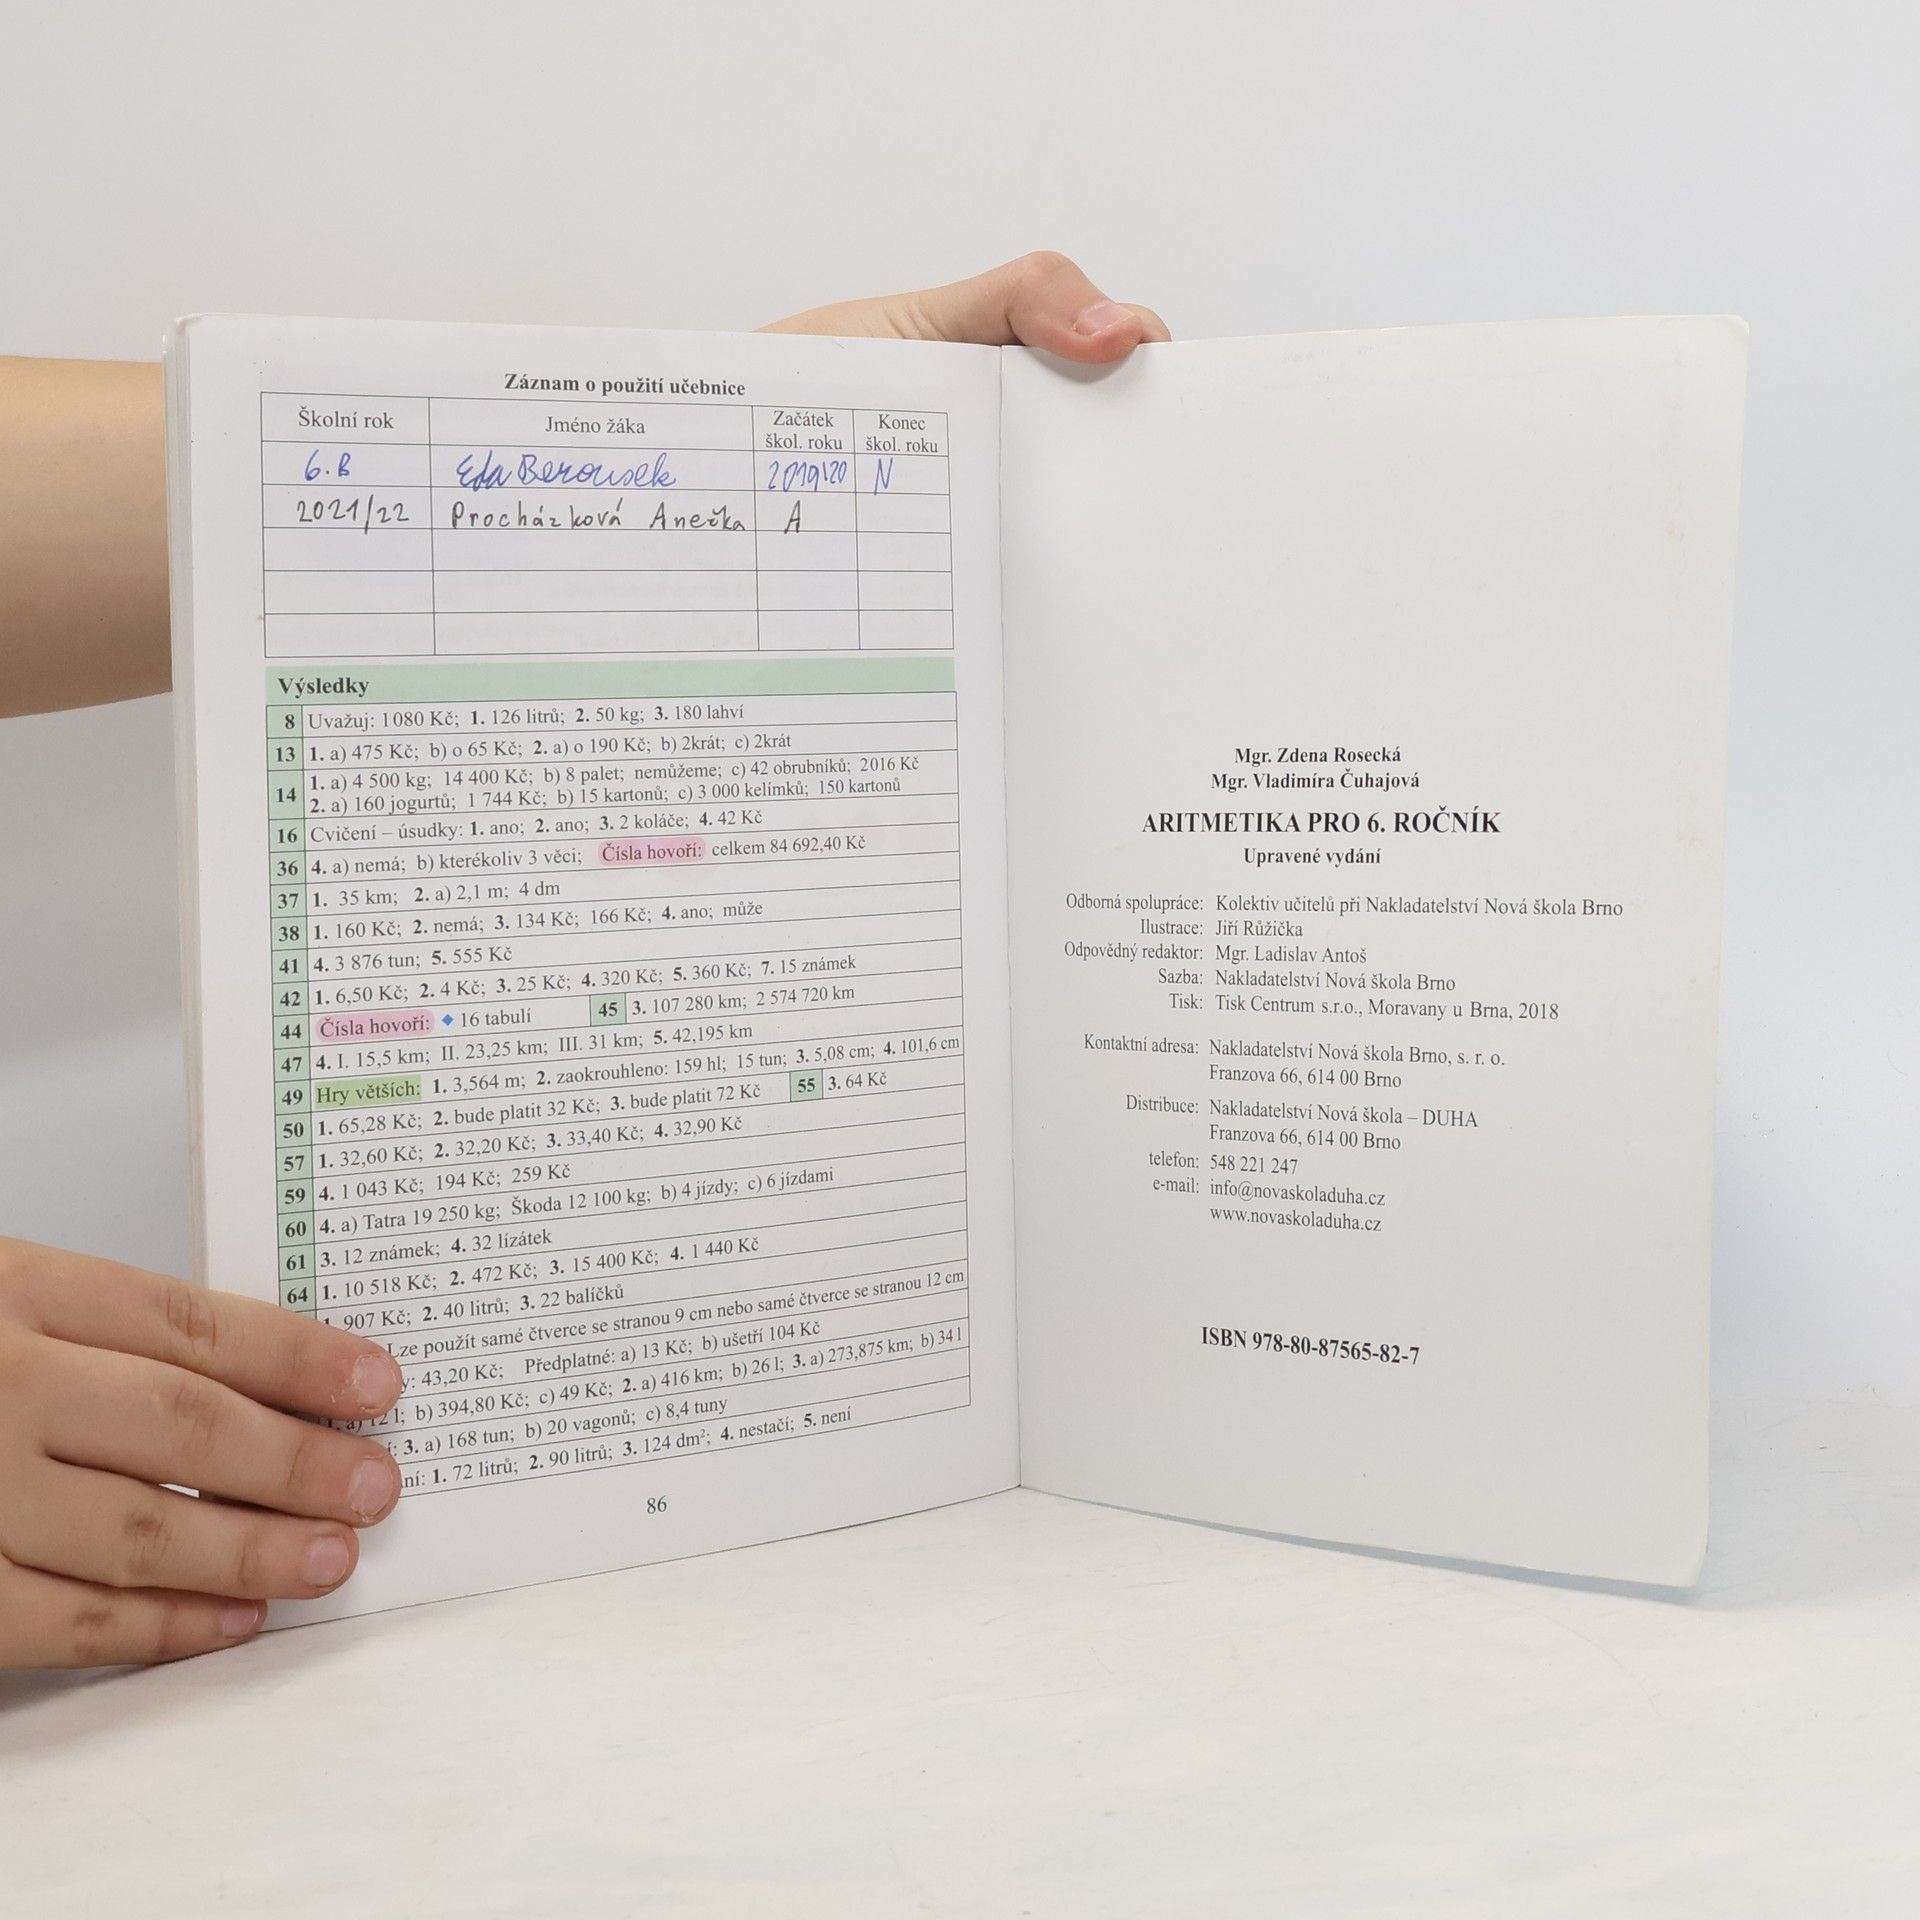 Záznam o použití učebnice
Školní rok Jméno žáka Začátek škol. roku Konec škol. roku
6.B Eda Berousek 2019/20 N
2021/22 Procházková Anežka A
Výsledky
8 Uvažuj: 1080 Kč; 1. 126 litrů; 2. 50 kg; 3. 180 lahví
13 1. a) 475 Kč; b) o 65 Kč; 2. a) o 190 Kč; b) 2krát; c) 2krát
14 1. a) 4 500 kg; 14 400 Kč; b) 8 palet; nemůžeme; c) 42 obrubníků; 2016 Kč
2. a) 160 jogurtů; 1 744 Kč; b) 15 kartonů; c) 3 000 kelímků; 150 kartonů
16 Cvičení – úsudky: 1. ano; 2. ano; 3. 2 koláče; 4. 42 Kč
36 4. a) nemá; b) kterékoliv 3 věci; Čísla hovoří: celkem 84 692,40 Kč
37 1. 35 km; 2. a) 2,1 m; 4 dm
38 1. 160 Kč; 2. nemá; 3. 134 Kč; 166 Kč; 4. ano; může
41 4. 3 876 tun; 5. 555 Kč
42 1. 6,50 Kč; 2. 4 Kč; 3. 25 Kč; 4. 320 Kč; 5. 360 Kč; 7. 15 známek
44 Čísla hovoří: ◆ 16 tabulí 45 3. 107 280 km; 2 574 720 km
47 4. I. 15,5 km; II. 23,25 km; III. 31 km; 5. 42,195 km
49 Hry větších: 1. 3,564 m; 2. zaokrouhleno: 159 hl; 15 tun; 3. 5,08 cm; 4. 101,6 cm
50 1. 65,28 Kč; 2. bude platit 32 Kč; 3. bude platit 72 Kč 55 3. 64 Kč
57 1. 32,60 Kč; 2. 32,20 Kč; 3. 33,40 Kč; 4. 32,90 Kč
59 4. 1 043 Kč; 194 Kč; 259 Kč
60 4. a) Tatra 19 250 kg; Škoda 12 100 kg; b) 4 jízdy; c) 6 jízdami
61 3. 12 známek; 4. 32 lízátek
64 1. 10 518 Kč; 2. 472 Kč; 3. 15 400 Kč; 4. 1 440 Kč
907 Kč; 2. 40 litrů; 3. 22 balíčků
Lze použít samé čtverce se stranou 9 cm nebo samé čtverce se stranou 12 cm
y: 43,20 Kč; Předplatné: a) 13 Kč; b) ušetří 104 Kč
1. a) 12 l; b) 394,80 Kč; c) 49 Kč; 2. a) 416 km; b) 26 l; 3. a) 273,875 km; b) 34 l
í: 3. a) 168 tun; b) 20 vagonů; c) 8,4 tuny
ní: 1. 72 litrů; 2. 90 litrů; 3. 124 dm²; 4. nestačí; 5. není
86
Mgr. Zdena Rosecká
Mgr. Vladimíra Čuhajová
ARITMETIKA PRO 6. ROČNÍK
Upravené vydání
Odborná spolupráce: Kolektiv učitelů při Nakladatelství Nová škola Brno
Ilustrace: Jiří Růžička
Odpovědný redaktor: Mgr. Ladislav Antoš
Sazba: Nakladatelství Nová škola Brno
Tisk: Tisk Centrum s.r.o., Moravany u Brna, 2018
Kontaktní adresa: Nakladatelství Nová škola Brno, s. r. o.
Franzova 66, 614 00 Brno
Distribuce: Nakladatelství Nová škola – DUHA
Franzova 66, 614 00 Brno
telefon: 548 221 247
e-mail: info@novaskoladuha.cz
www.novaskoladuha.cz
ISBN 978-80-87565-82-7